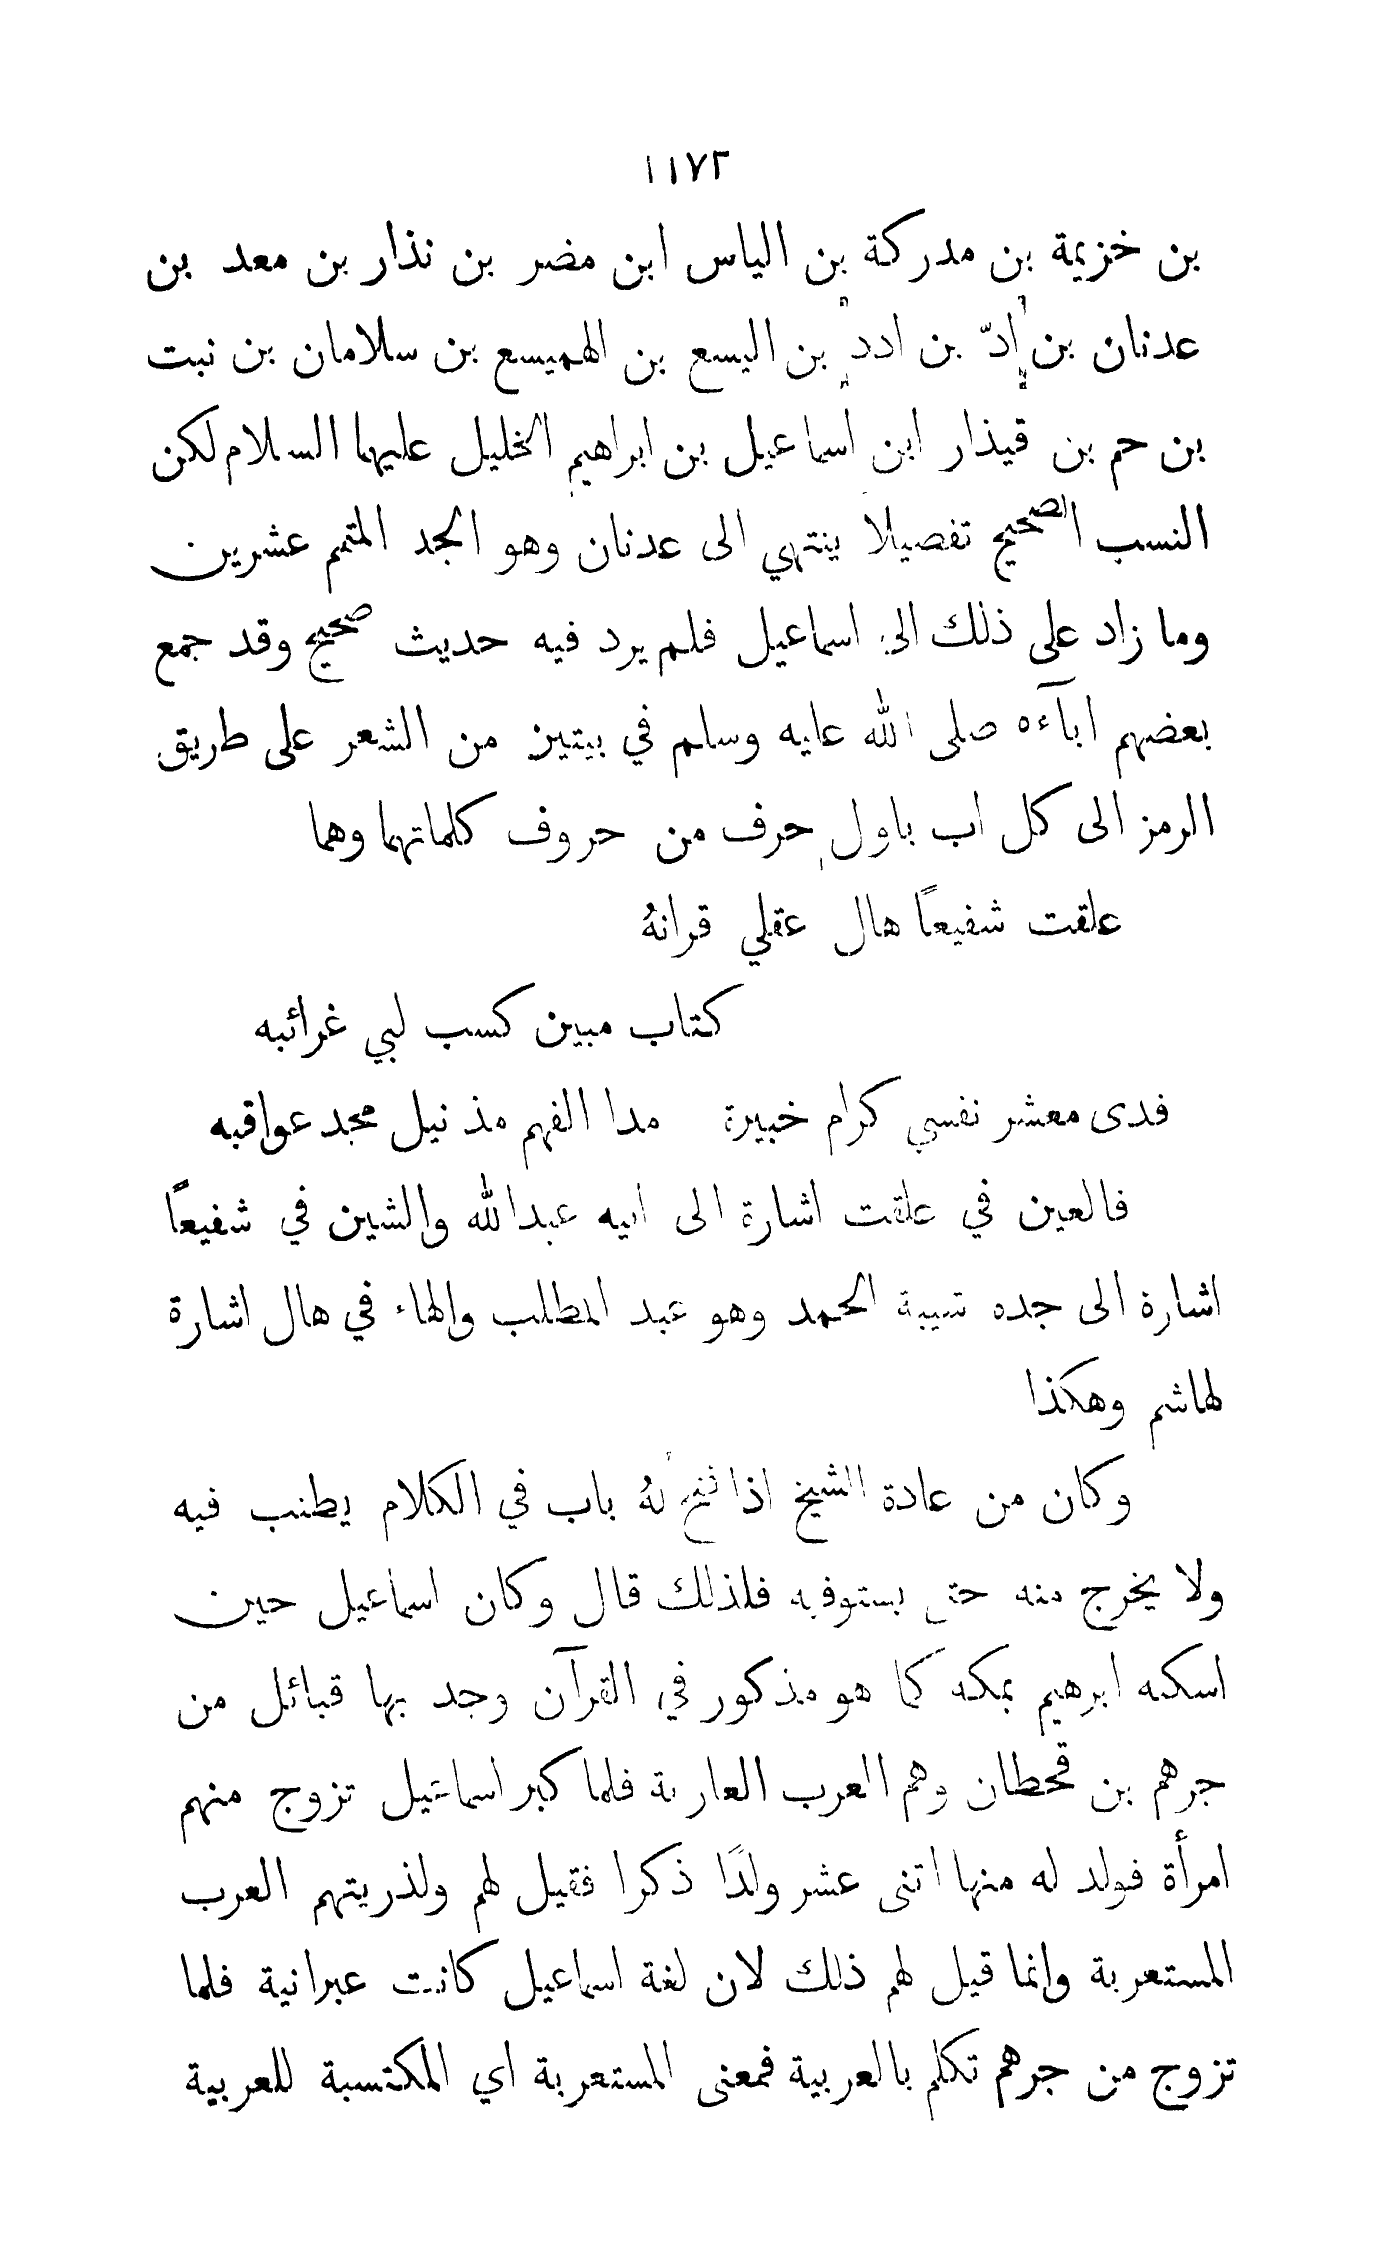 ١١٧٢
بن خزيمة بن مدركة بن الياس ابن مضر بن نذار بن معد بن
عدنان بن اُدّ بن ادد بن اليسع بن الهميسع بن سلامان بن نبت
بن حم بن قيذار ابن اسماعيل بن ابراهيم الخليل عليهما السلام لكن
النسب الصحيح تفصيلا ينتهي الى عدنان وهو الجد المتمم عشرين
وما زاد على ذلك الى اسماعيل فلم يرد فيه حديث صحيح وقد جمع
بعضهم ابآءه صلى الله عليه وسلم في بيتين من الشعر على طريق
الرمز الى كل اب باول حرف من حروف كلماتهما وهما
علقت شفيعًا هال عقلي قرانهُ
كتاب مبين كسب لبي غرائبه
فدى معشر نفسي كرام خبيرة مدا الفهم مذ نيل مجد عواقبه
فالعين في علقت اشارة الى ابيه عبدالله والشين في شفيعًا
اشارة الى جده شيبة الحمد وهو عبد المطلب والهاء في هال اشارة
لهاشم وهكذا
وكان من عادة الشيخ اذا فتح لهُ باب في الكلام يطنب فيه
ولا يخرج منه حتى يستوفيه فلذلك قال وكان اسماعيل حين
اسكنه ابرهيم بمكه كما هو مذكور في القرآن وجد بها قبائل من
جرهم بن قحطان وهم العرب العاربة فلما كبر اسماعيل تزوج منهم
امرأة فولد له منها اثنى عشر ولدًا ذكرا فقيل لهم ولذريتهم العرب
المستعربة وانما قيل لهم ذلك لان لغة اسماعيل كانت عبرانية فلما
تزوج من جرهم تكلم بالعربية فمعنى المستعربة اي المكتسبة للعربية